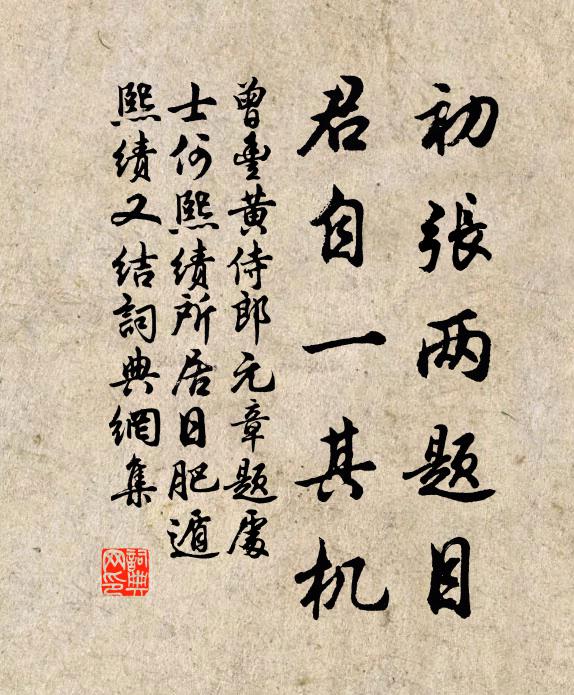 初張两题目
君自一其机
曾豊黄侍郎元章题處
士何熙績所居日肥遁
熙績又结詞典網集
詞典网印